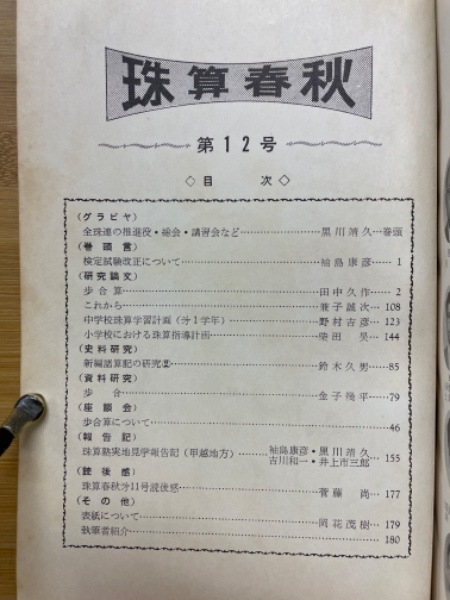 珠算春秋
第12号
◇目 次◇
(グラビヤ)
全珠連の推進役・総会・講習会など…………………黒川靖久…巻頭
(巻頭言)
検定試験改正について…………………袖島康彦…… 1
(研究論文)
歩合算…………………田中久作…… 2
これから…………………兼子誠次…108
中学校珠算学習計画(才1学年)…………………野村吉彦…123
小学校における珠算指導計画…………………柴田 昊…144
(史料研究)
新編諸算記の研究…………………鈴木久男……85
(資料研究)
歩 合…………………金子幾平……79
(座談会)
歩合算について…………………46
(報告記)
珠算塾実地見学報告記(甲越地方)……袖島康彦・黒川靖久
古川和一・井上市三郎…155
(読後感)
珠算春秋才11号読後感…………………菅藤 尚…177
(その他)
表紙について…………………岡花茂樹…179
執筆者紹介…………………180